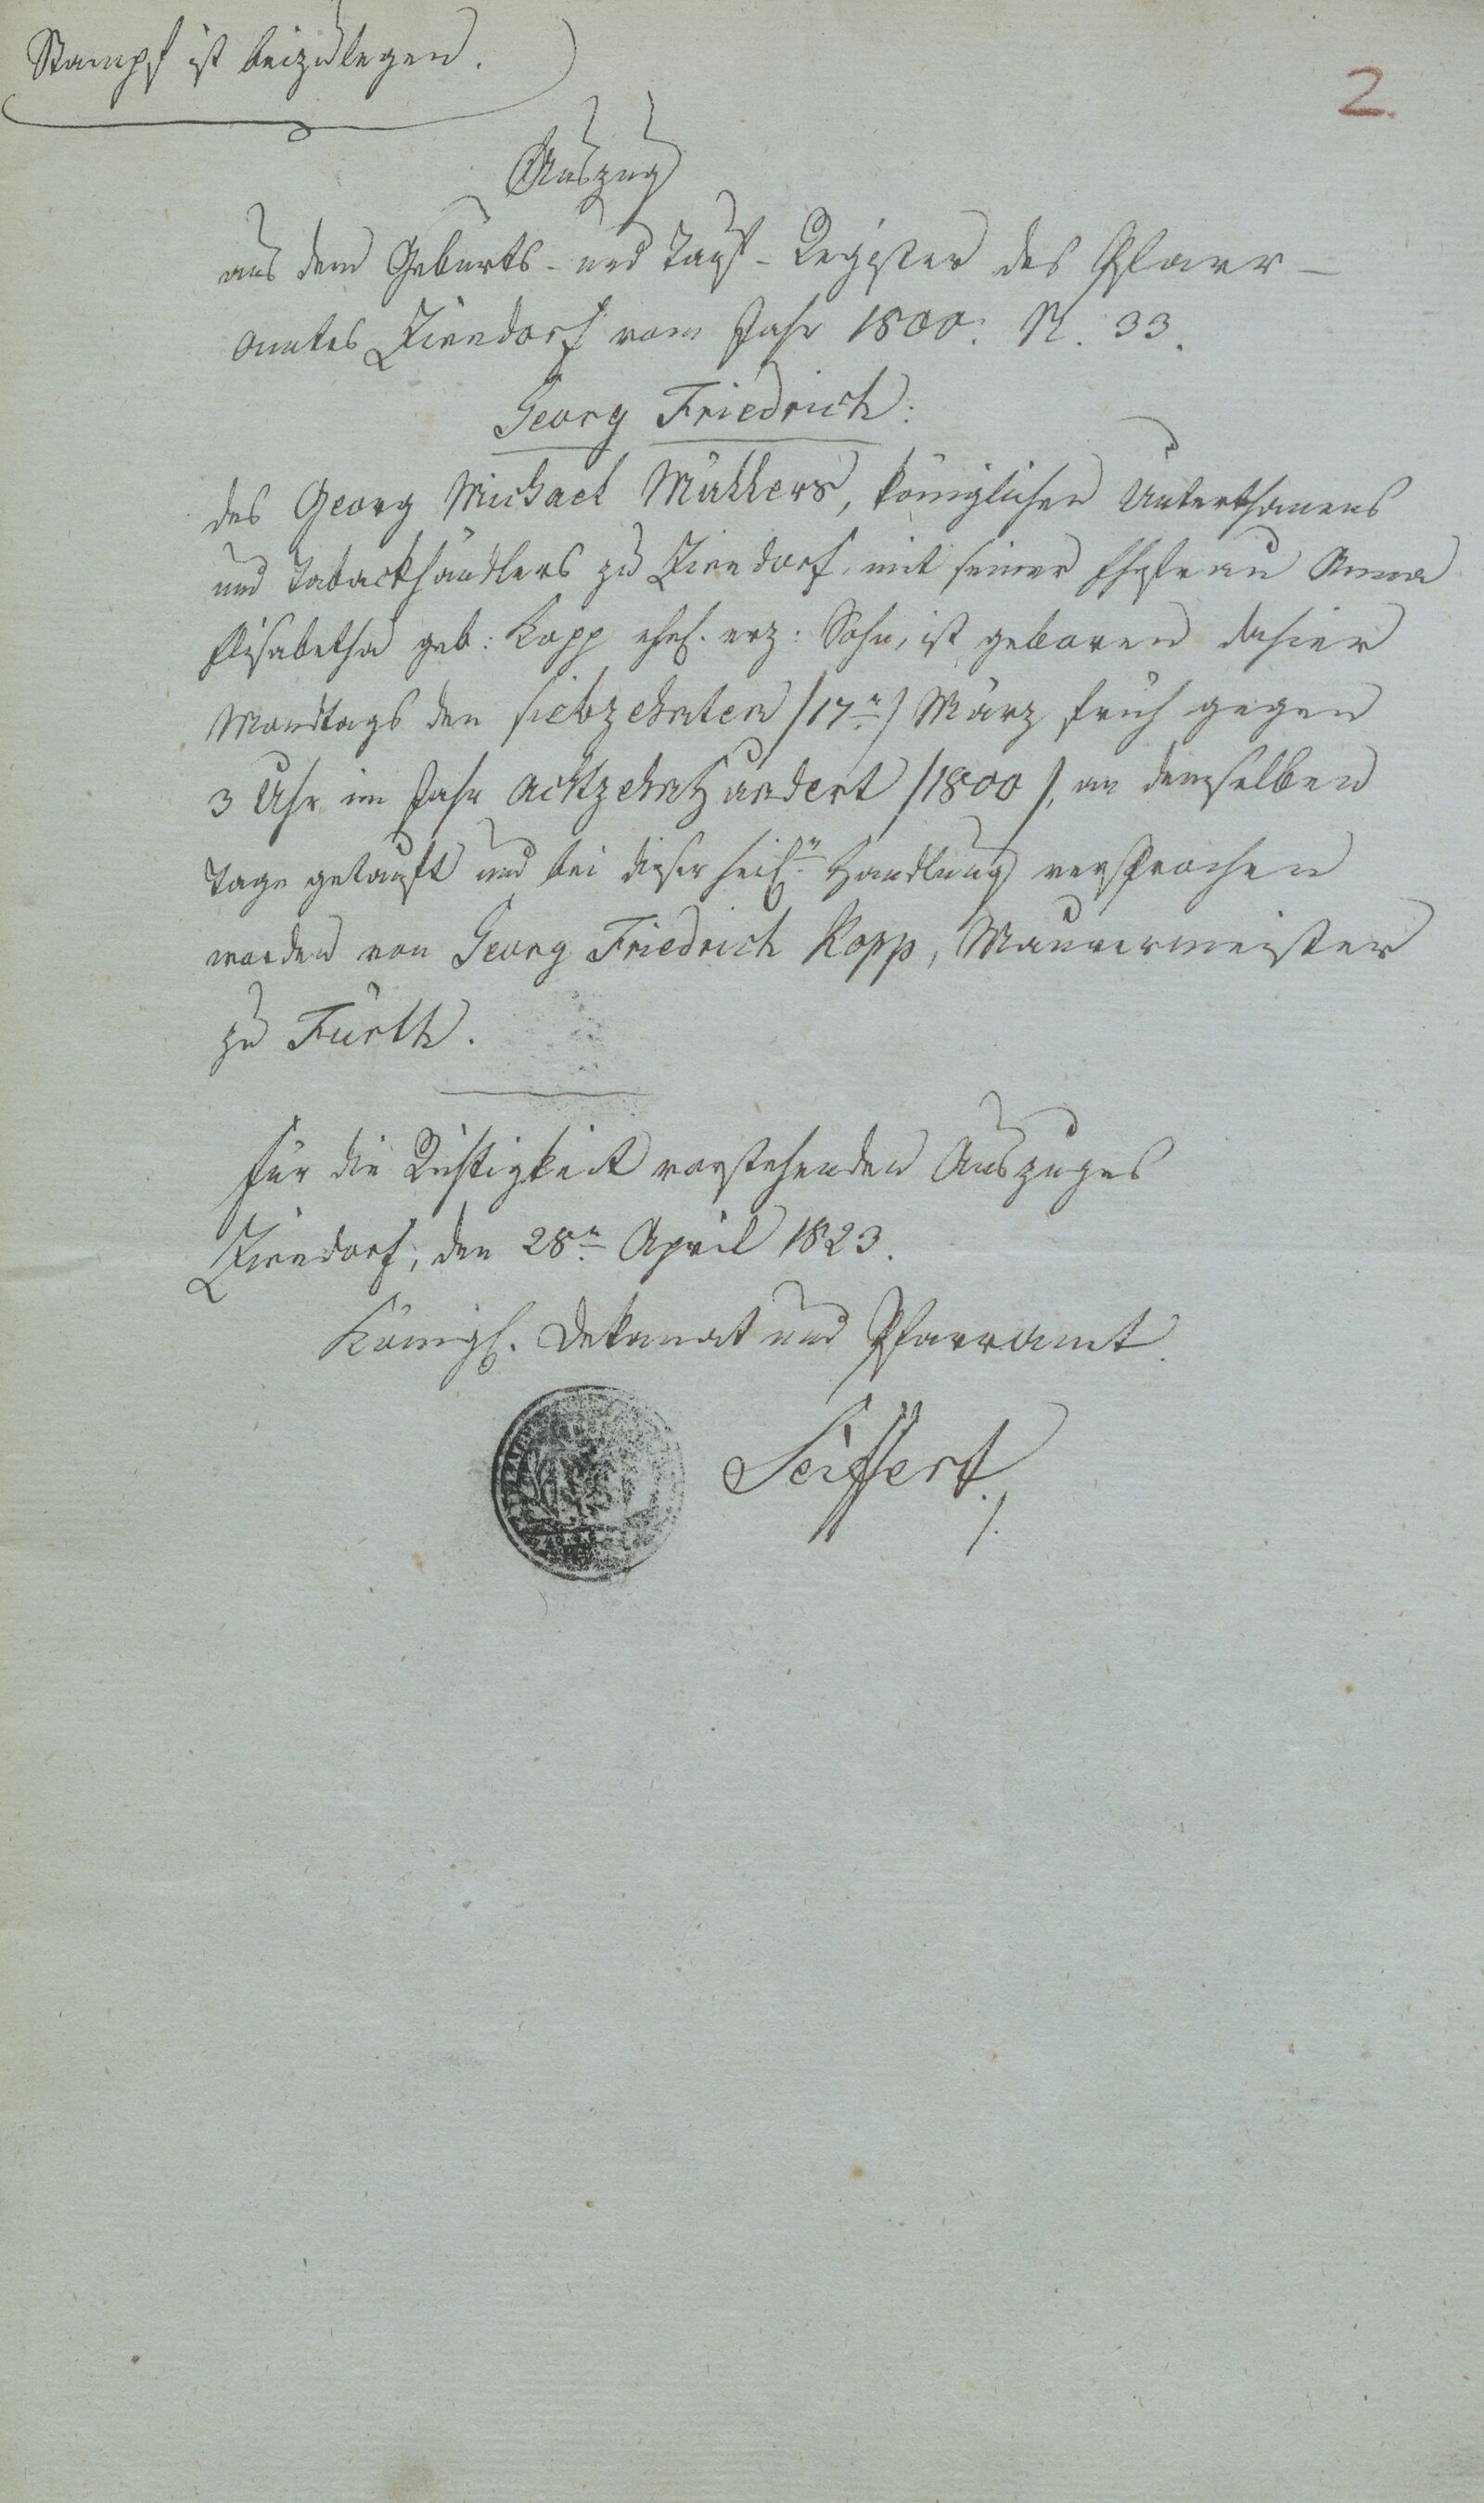 Stampf ist beizulegen.
2.
Auszug
aus dem Geburts- und Tauf-Register des Pfarr-
amtes Zirndorf vom Jahr 1800. N. 33.
Georg Friedrich:
des Georg Michael Müllers, königlichen Unterthanens
und Tabackhändlers zu Zirndorf, mit seiner Ehefrau Anna
Elisabetha geb: Kopp ehel. erz: Sohn, ist geboren dahier
Mondtags den siebzehnten /17n/ März früh gegen
3 Uhr im Jahr achtzehnhundert /1800/, an demselben
Tage getauft und bei dieser heil.n Handlung versprochen
worden von Georg Friedrich Kopp, Maurermeister
zu Fürth.
Für die Richtigkeit vorstehenden Auszuges
Zirndorf, den 28n April 1823.
Königl. Dekanat und Pfarramt.
Seiffert.